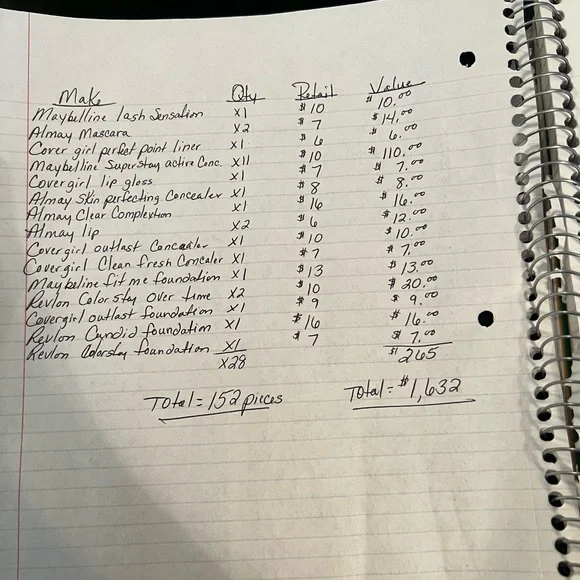 Make Qty Retail Value
Maybelline lash Sensation x1 $10 $10.00
Almay Mascara x2 $7 $14.00
Cover girl perfect point liner x1 $6 $6.00
Maybelline Superstay active Conc. x11 $10 $110.00
Covergirl lip gloss x1 $7 $7.00
Almay Skin perfecting Concealer x1 $8 $8.00
Almay Clear Complextion x1 $16 $16.00
Almay lip x2 $6 $12.00
Covergirl outlast Concealer x1 $10 $10.00
Covergirl Clean fresh Concaler x1 $7 $7.00
Maybeline fit me foundation x1 $13 $13.00
Revlon Colorstay over time x2 $10 $20.00
Covergirl outlast foundation x1 $9 $9.00
Revlon Candid foundation x1 $16 $16.00
Revlon Colorstay foundation x1 $7 $7.00
x28 $265
Total = 152 pieces Total = $1,632